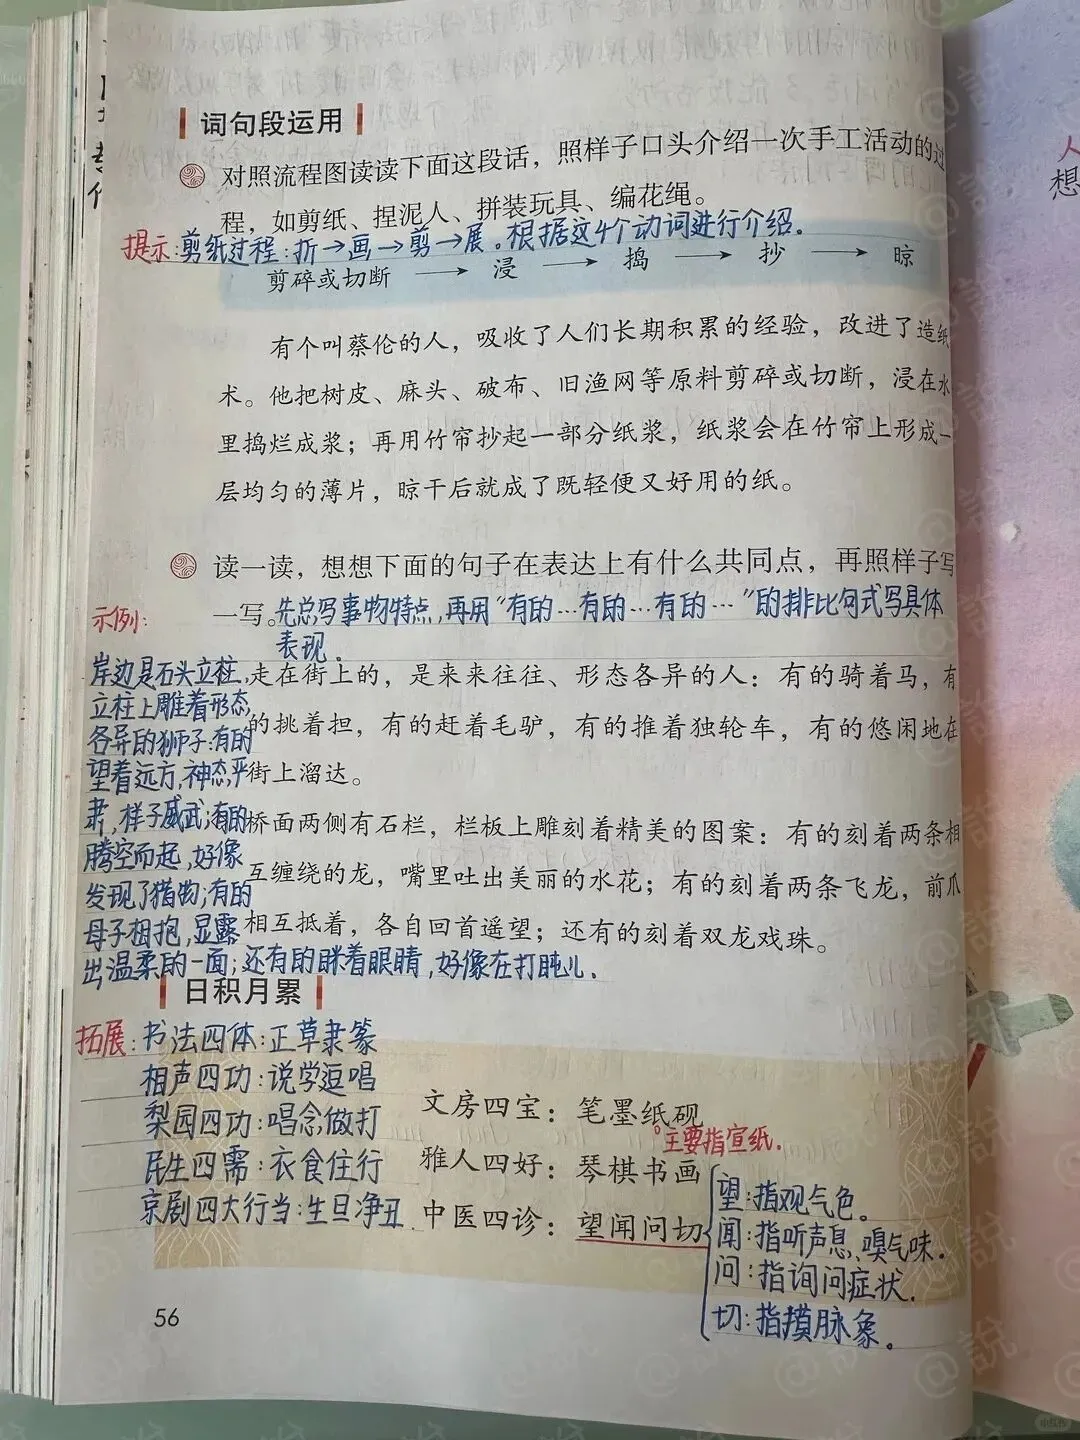 词句段运用
对照流程图读读下面这段话，照样子口头介绍一次手工活动的过
程，如剪纸、捏泥人、拼装玩具、编花绳。
提示：剪纸过程：折→画→剪→展。根据这4个动词进行介绍。
剪碎或切断 → 浸 → 捣 → 抄 → 晾
有个叫蔡伦的人，吸收了人们长期积累的经验，改进了造纸
术。他把树皮、麻头、破布、旧渔网等原料剪碎或切断，浸在水
里捣烂成浆；再用竹帘抄起一部分纸浆，纸浆会在竹帘上形成一
层均匀的薄片，晾干后就成了既轻便又好用的纸。
读一读，想想下面的句子在表达上有什么共同点，再照样子写
一写。
先总写事物特点，再用“有的…有的…有的…”的排比句式写具体
表现。
走在街上的，是来来往往、形态各异的人：有的骑着马，有
的挑着担，有的赶着毛驴，有的推着独轮车，有的悠闲地在
街上溜达。
桥面两侧有石栏，栏板上雕刻着精美的图案：有的刻着两条相
互缠绕的龙，嘴里吐出美丽的水花；有的刻着两条飞龙，前爪
相互抵着，各自回首遥望；还有的刻着双龙戏珠。
示例：
岸边是石头立柱，
立柱上雕着形态
各异的狮子：有的
望着远方，神态严
肃，样子威武；有的
腾空而起，好像
发现了猎物；有的
母子相抱，显露
出温柔的一面；还有的眯着眼睛，好像在打盹儿．
日积月累
拓展：书法四体：正草隶篆
相声四功：说学逗唱
梨园四功：唱念做打
民生四需：衣食住行
京剧四大行当：生旦净丑
文房四宝：笔墨纸砚
主要指宣纸．
雅人四好：琴棋书画
中医四诊：望闻问切
望：指观气色。
闻：指听声息、嗅气味．
问：指询问症状．
切：指摸脉象。
56
人
想
@説
小红书